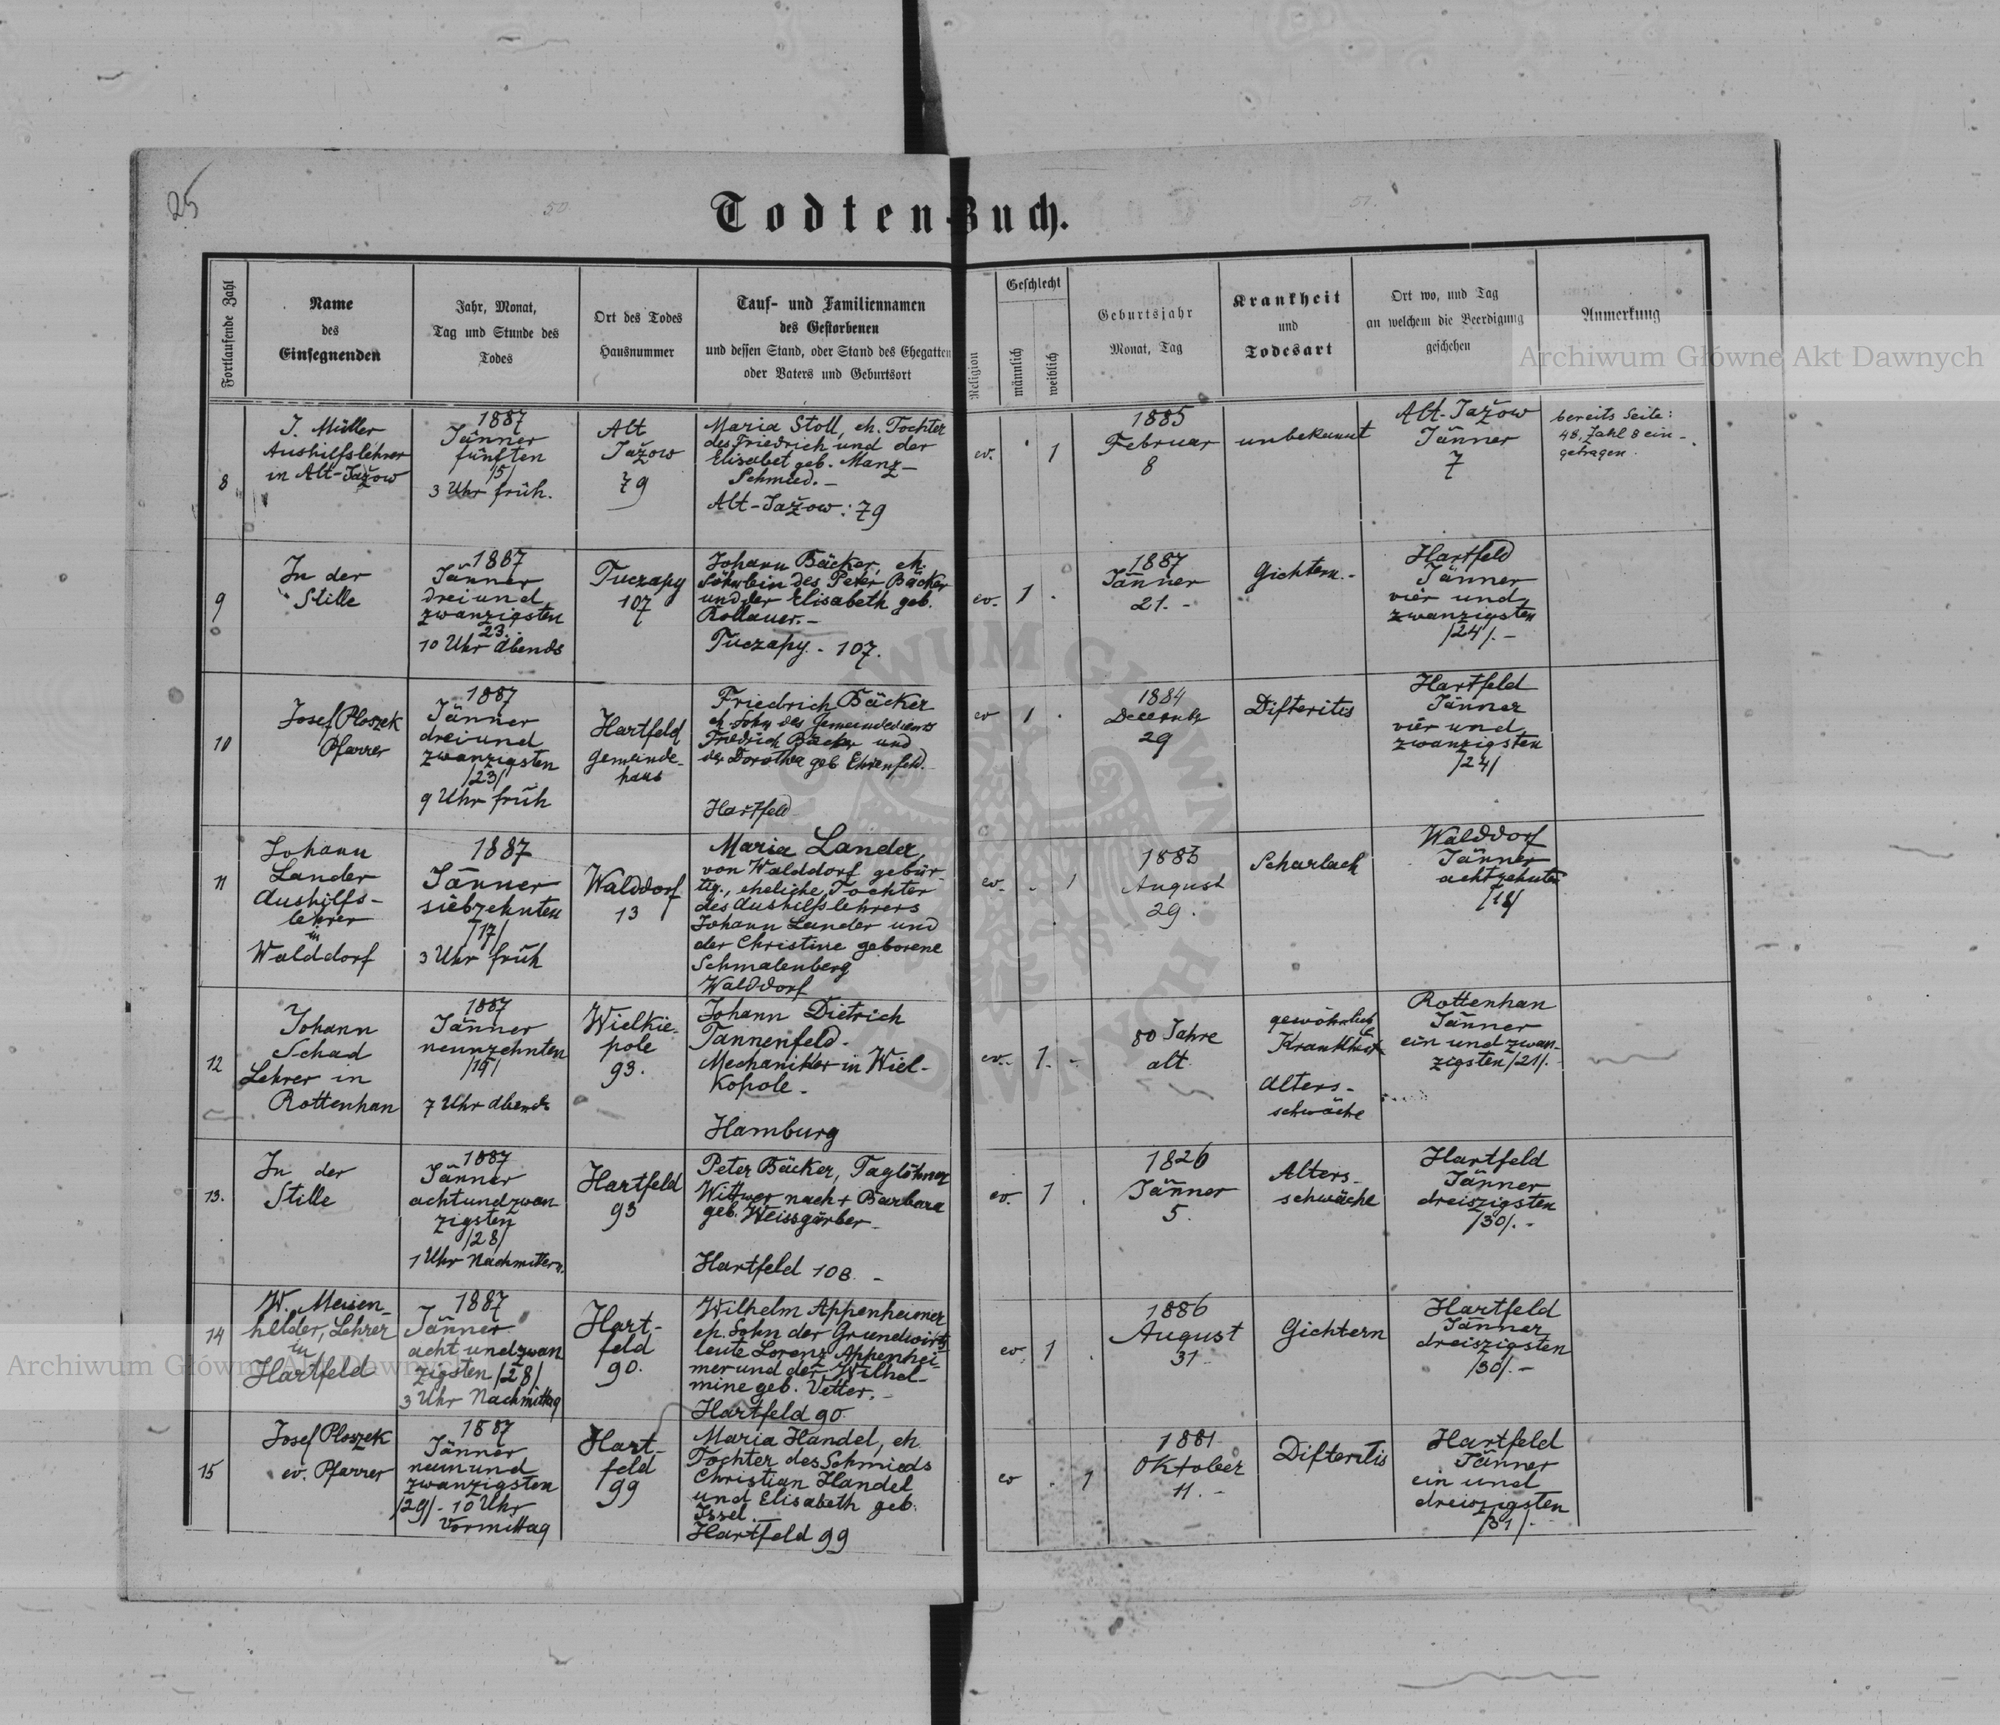 25
50
51.
Todten-Buch.
Fortlaufende Zahl
Name
des
Einsegnenden
Jahr, Monat,
Tag und Stunde des
Todes
Ort des Todes
Hausnummer
Tauf- und Familiennamen
des Gestorbenen
und dessen Stand, oder Stand des Ehegatten
oder Vaters und Geburtsort
Religion
Geschlecht
männlich
weiblich
Geburtsjahr
Monat, Tag
Krankheit
und
Todesart
Ort wo, und Tag
an welchem die Beerdigung
geschehen
Anmerkung
Archiwum Główne Akt Dawnych
8
J. Müller
Aushilfslehrer
in Alt-Jažow
1887
Jänner
fünften
/5/
3 Uhr früh.
Alt
Jažow
79
Maria Stoll, eh. Tochter
des Friedrich und der
Elisabet geb. Manz-
Schmied. -
Alt-Jažow: 79
ev.
1
1885
Februar
8
unbekannt
Alt-Jažow
Jänner
7
bereits Seite:
48, Zahl 8 ein-
getragen.
9
In der
Stille
1887
Jänner
drei und
zwanzigsten
23.
10 Uhr Abends
Tuczapy
107
Johann Bäcker, eh.
Söhnlein des Peter Bäcker
und der Elisabeth geb.
Rollauer. -
Tuczapy - 107.
ev.
1
1887
Jänner
21. -
Gichtern. -
Hartfeld
Jänner
vier und
zwanzigsten
/24/. -
10
Josef Ploszek
Pfarrer
1887
Jänner
drei und
zwanzigsten
/23/
9 Uhr früh
Hartfeld
Gemeinde-
haus
Friedrich Bäcker
eh. Sohn des Gemeindedieners
Friedrich Bäcker und
der Dorothea geb Ehrenfeld.
Hartfeld
ev
1
1884
Decemb.
29
Difteritis
Hartfeld
Jänner
vier und
zwanzigsten
/24/
11
Johann
Lander
Aushilfs-
lehrer
in
Walddorf
1887
Jänner
siebzehnten
/17/
3 Uhr früh
Walddorf
13
Maria Lander,
von Walddorf gebür-
tig, eheliche Tochter
des Aushilfslehrers
Johann Lander und
der Christine geborene
Schmalenberg
Walddorf
ev.
1
August
29.
Scharlach
Walddorf
Jänner
achtzehnten
/18/
12
Johann
Schad
Lehrer in
Rottenhan
1887
Jänner
neunzehnten
/19/
7 Uhr Abends
Wielkie-
pole
93.
Johann Dietrich
Tannenfeld -
Mechaniker in Wiel-
kopole -
Hamburg
ev.
1. -
80 Jahre
alt.
gewöhnlich
Krankheit
Alters-
schwäche
Rottenhan
Jänner
ein und zwan-
zigsten /21/. -
13.
In der
Stille
1887
Jänner
achtundzwan
zigsten
/28/
1 Uhr Nachmittern.
Hartfeld
93
Peter Bäcker, Taglöhner
Wittwer nach + Barbara
geb. Weissgärber -
Hartfeld 108. -
ev.
1
1826
Jänner
5.
Alters-
schwäche
Hartfeld
Jänner
dreiszigsten
/30/. -
14
W. Meisen-
helder, Lehrer
in
Hartfeld
1887
Jänner
acht und zwan
zigsten /28/
3 Uhr Nachmittag
Hart-
feld
90.
Wilhelm Appenheimer
eh. Sohn der Grundwirts-
leute Lorenz Appenhei-
mer und der Wilhel-
mine geb. Vetter. -
Hartfeld 90.
ev.
1
1886
August
31
Gichtern
Hartfeld
Jänner
dreiszigsten
/30/. -
Archiwum Główne Akt Dawnych
15
Josef Ploszek
ev. Pfarrer
1887
Jänner
neun und
zwanzigsten
/29/ - 10 Uhr
Vormittag
Hart-
feld
99
Maria Handel, eh
Tochter des Schmieds
Christian Handel
und Elisabeth geb.
Issel. -
Hartfeld 99
ev
1
1881
Oktober
11. -
Difteritis
Hartfeld
Jänner
ein und
dreiszigsten
/31/. -